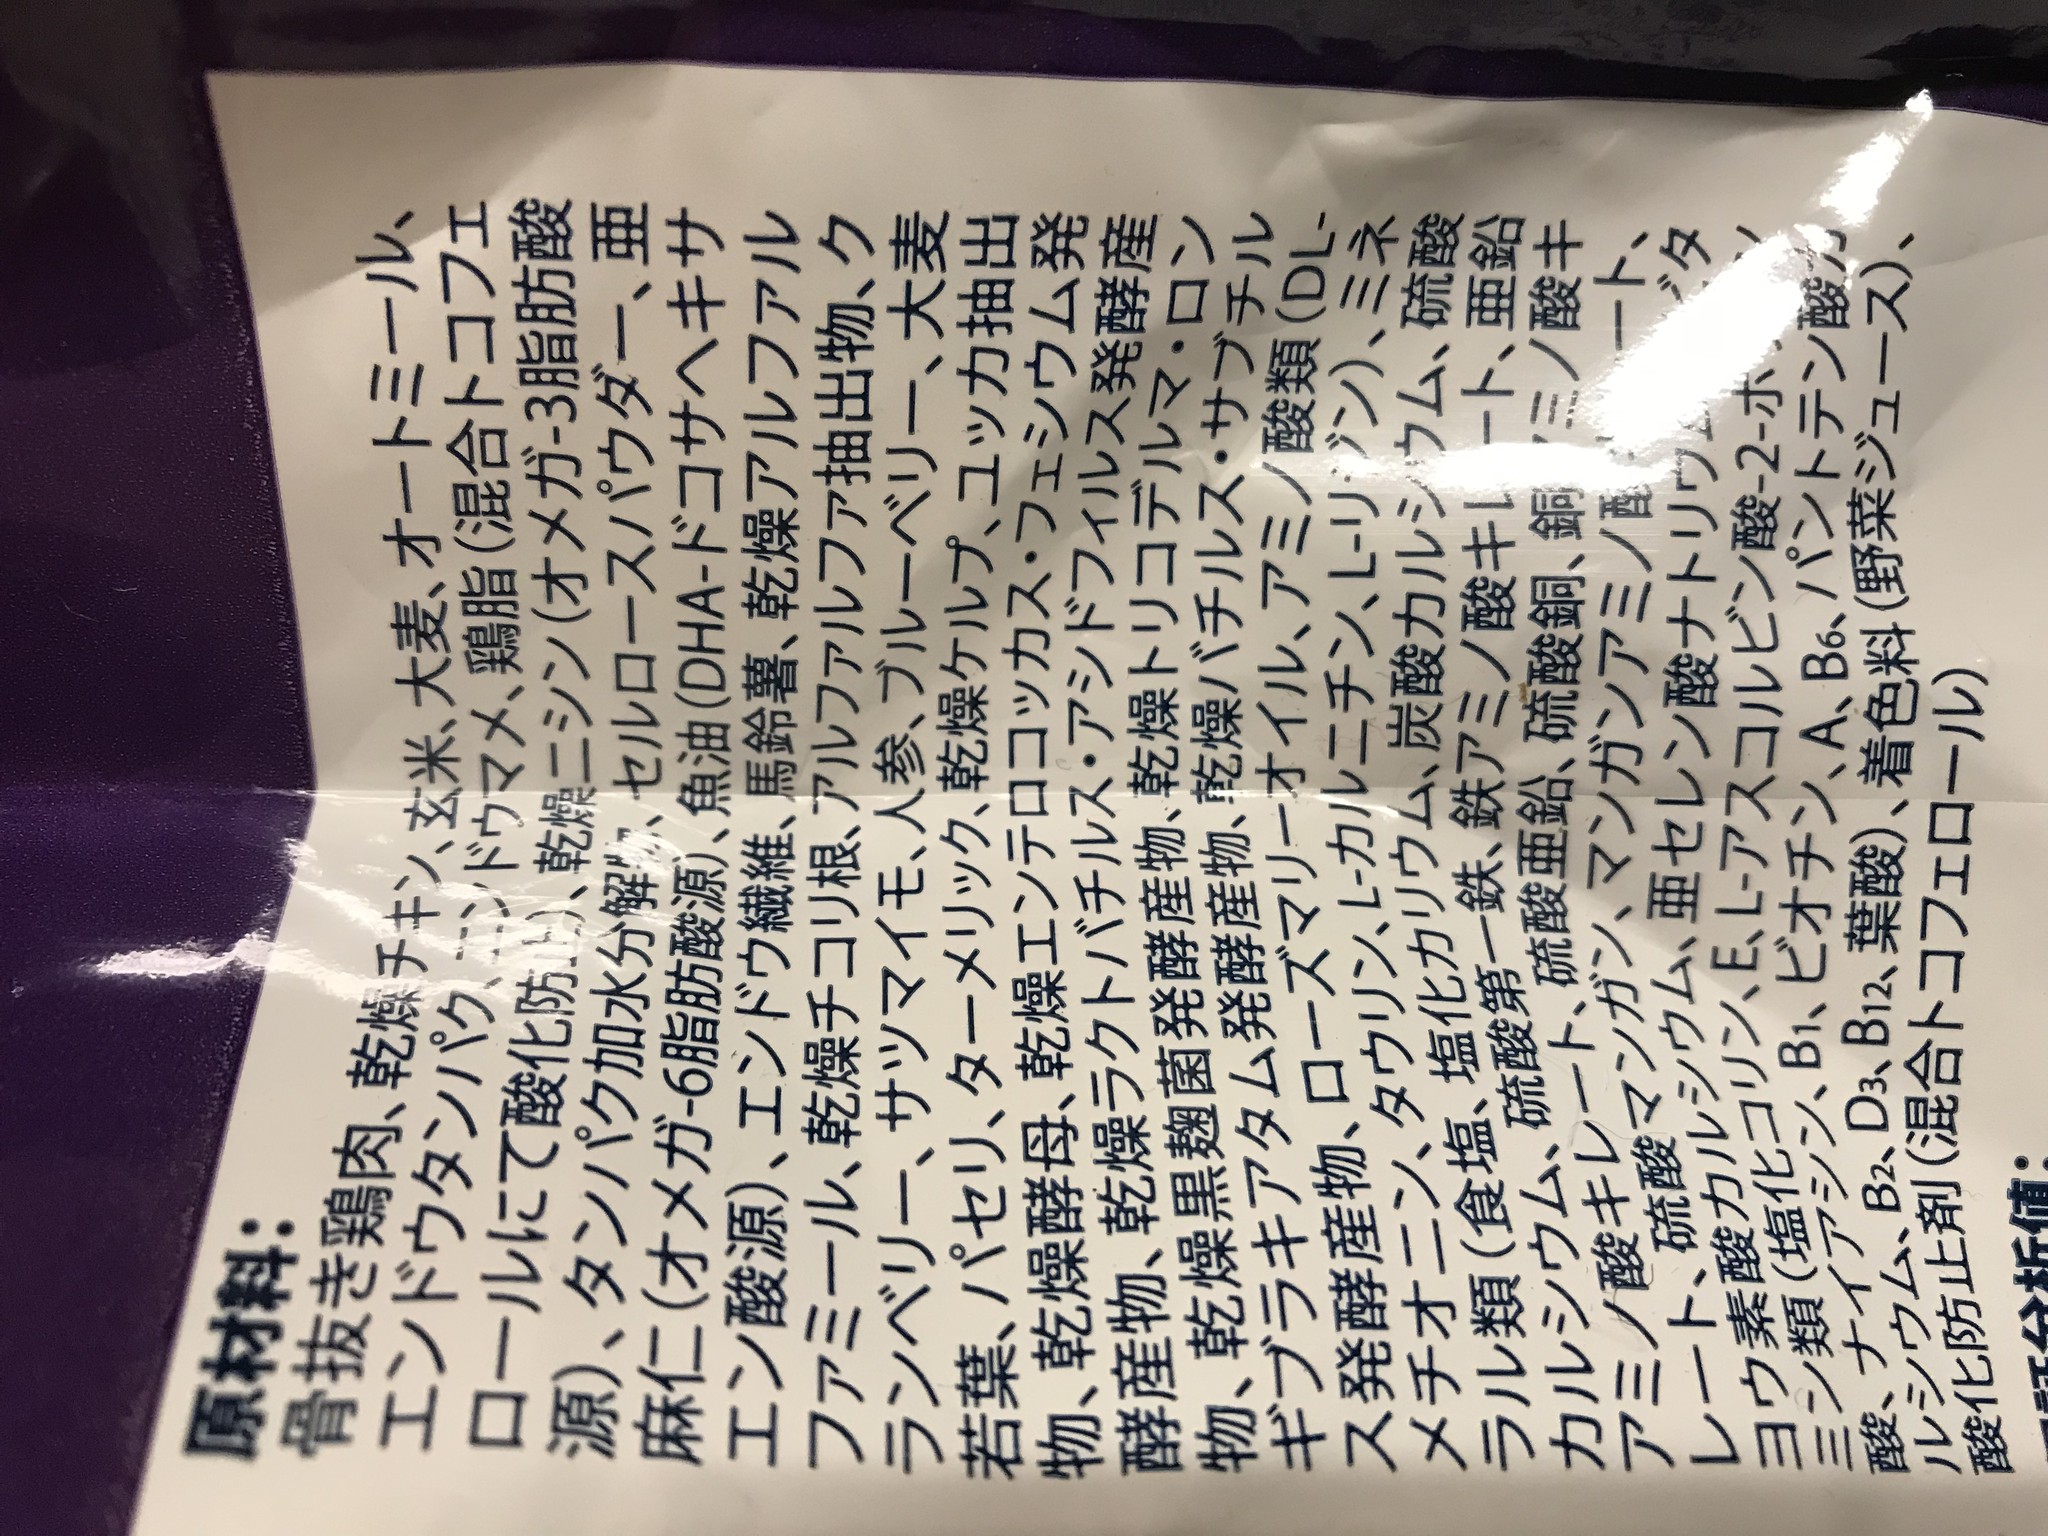 原材料:
骨抜き鶏肉、乾燥チキン、玄米、大麦、オートミール、
エンドウタンパク、エンドウマメ、鶏脂(混合トコフェ
ロールにて酸化防止)、乾燥ニシン(オメガ-3脂肪酸
源)、タンパク加水分解物、セルロースパウダー、亜
麻仁(オメガ-6脂肪酸源)、魚油(DHA-ドコサヘキサ
エン酸源)、エンドウ繊維、馬鈴薯、乾燥アルファル
ファミール、乾燥チコリ根、アルファルファ抽出物、ク
ランベリー、サツマイモ、人参、ブルーベリー、大麦
若葉、パセリ、ターメリック、乾燥ケルプ、ユッカ抽出
物、乾燥酵母、乾燥エンテロコッカス・フェシウム発
酵産物、乾燥ラクトバチルス・アシドフィルス発酵産
物、乾燥黒麹菌発酵産物、乾燥トリコデルマ・ロン
ギブラキアタム発酵産物、乾燥バチルス・サブチル
ス発酵産物、ローズマリーオイル、アミノ酸類(DL-
メチオニン、タウリン、L-カルニチン、L-リジン)、ミネ
ラル類(食塩、塩化カリウム、炭酸カルシウム、硫酸
カルシウム、硫酸第一鉄、鉄アミノ酸キレート、亜鉛
アミノ酸キレート、硫酸亜鉛、硫酸銅、銅アミノ酸キ
レート、硫酸マンガン、マンガンアミノ酸キレート、
ヨウ素酸カルシウム、亜セレン酸ナトリウム ビタ
ミン類(塩化コリン、E、L-アスコルビン酸-2-ポ
酸、ナイアシン、B1、ビオチン、A、B6、パントテン酸カ
ルシウム、B2、D3、B12、葉酸)、着色料(野菜ジュース)、
酸化防止剤(混合トコフェロール)
分析値: